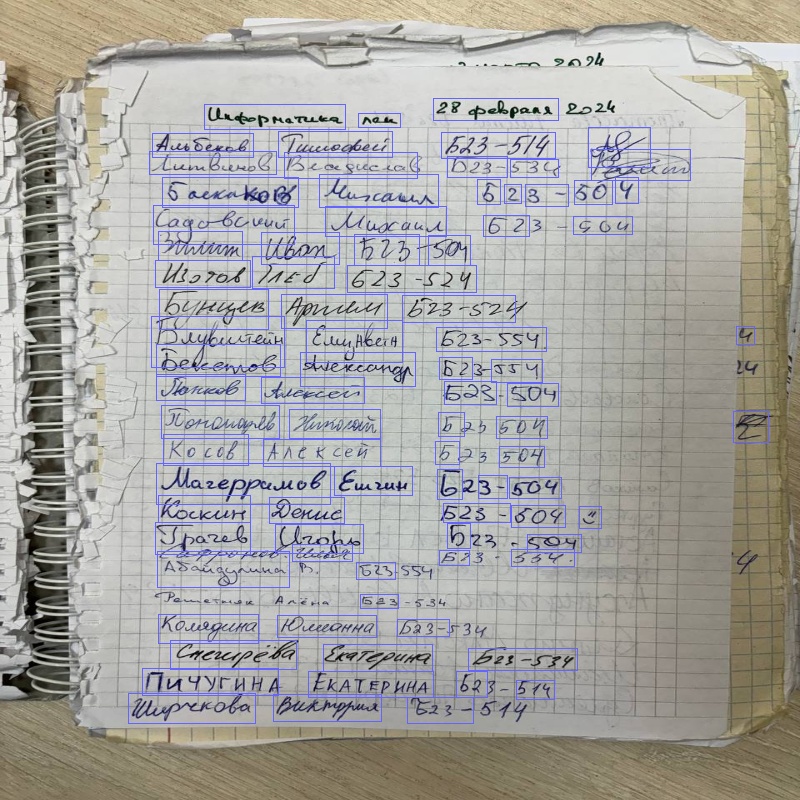 28 февраля 2024
Информатика лек
Альбеков Тимофей Б23-514
Литвинов Владислав Б23-534
Баскаков Михаил Б23-504
Садовский Михаил Б23-504
Иван Б23-504
Изотов Глеб Б23-524
Бунцев Артем Б23-524
Блувштейн Елизавета Б23-554
Александр Б23-554
Панков Алексей Б23-504
Пономарев Николай Б23 504
Косов Алексей Б23 504
Магеррамов Ешгин Б23-504
Коскин Денис Б23-504
Грачев Игорь Б23-504
Сафронов Илья Б23-534
Абайдулина В. Б23-554
Решетняк Алёна Б23-534
Комядина Юлианна Б23-534
Снегирёва Екатерина Б23-534
Пичугина Екатерина Б23-514
Ширчкова Виктория Б23-514